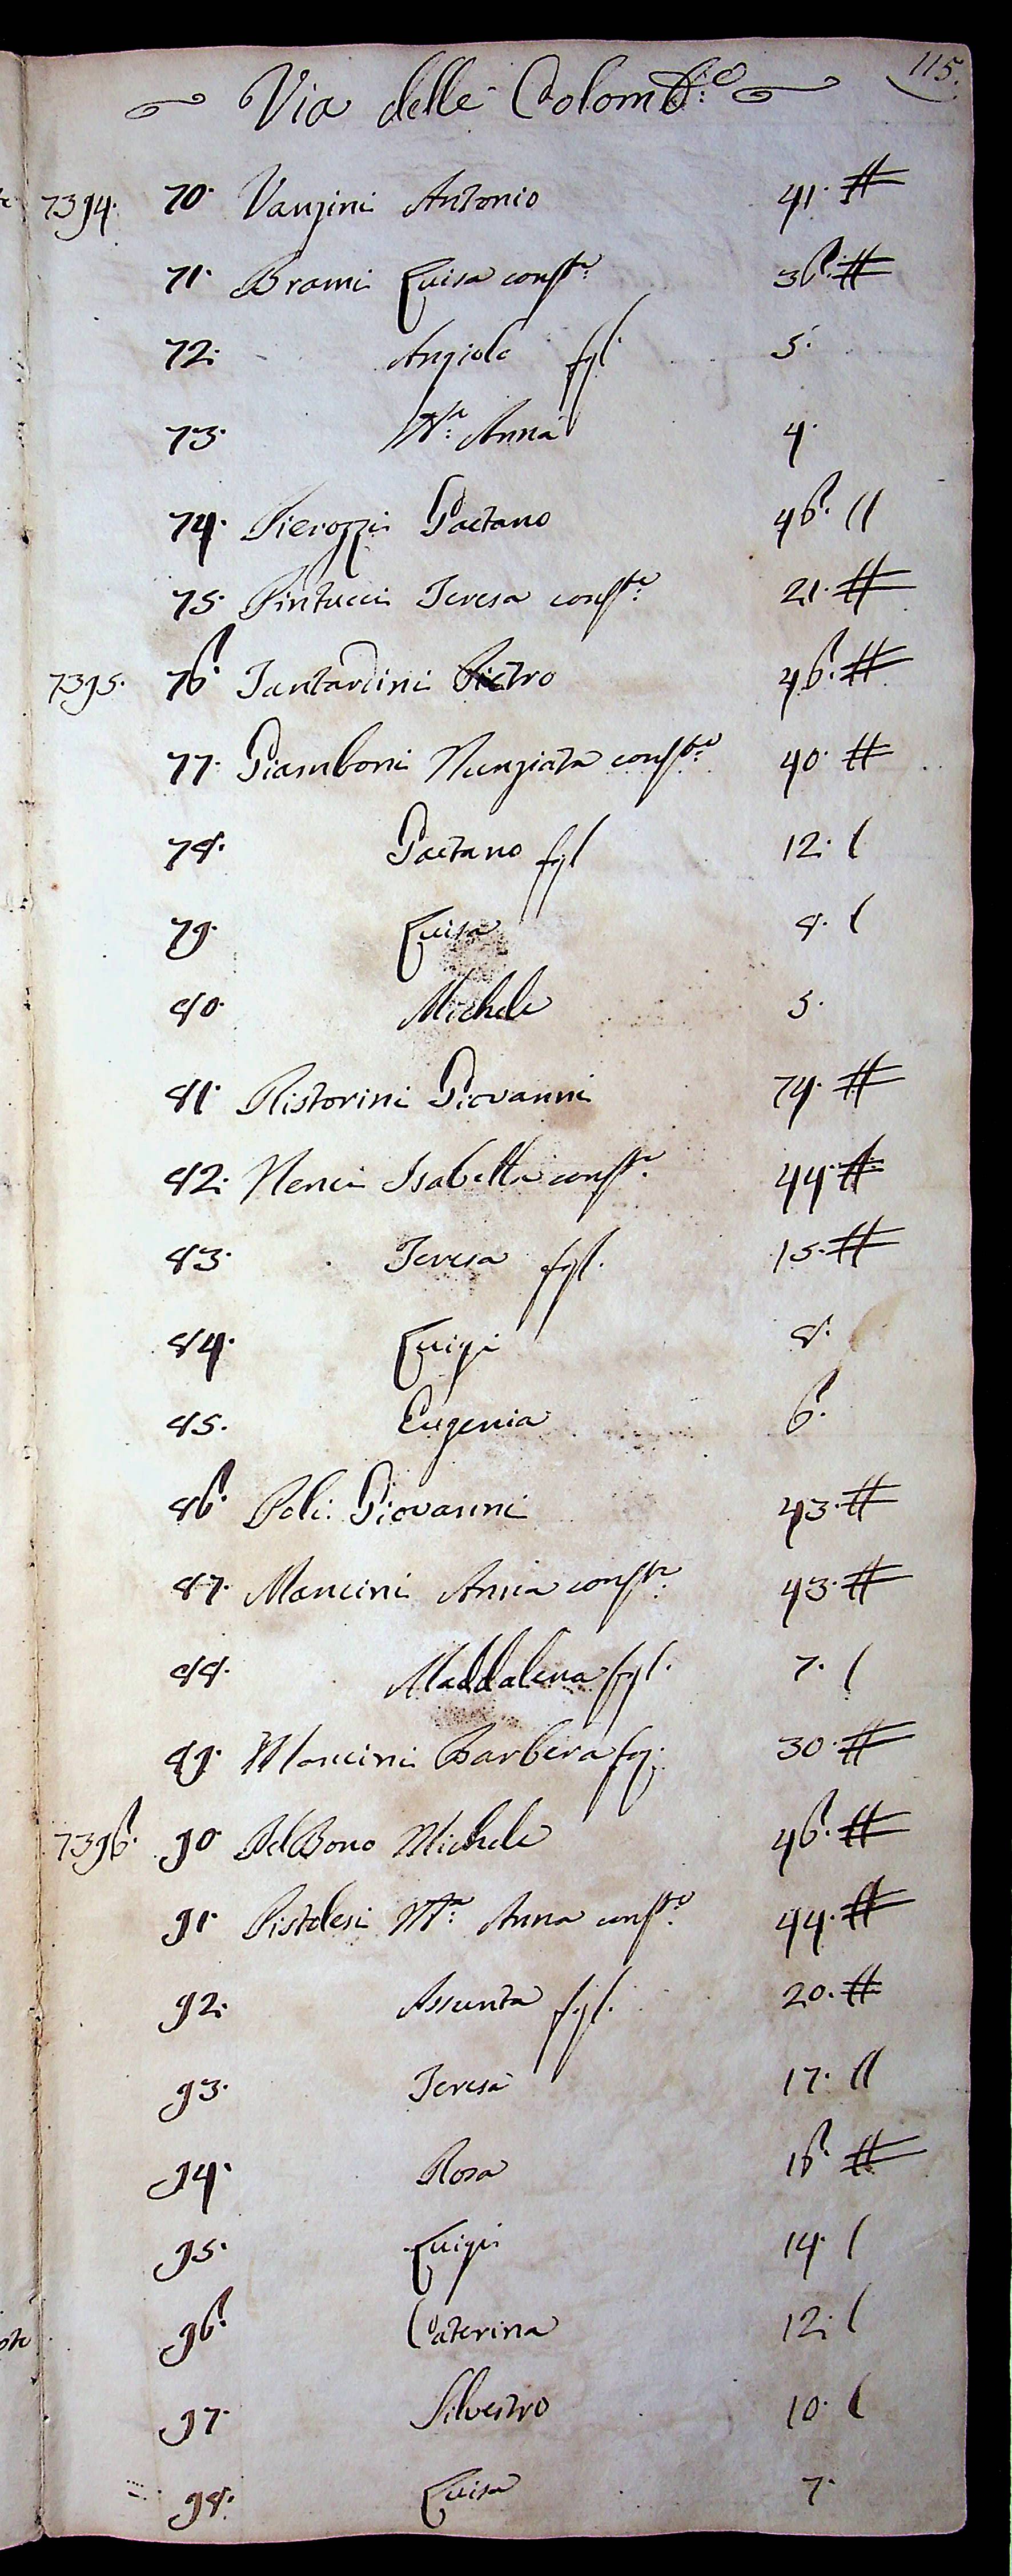 115.
Via delle Colomb:e
7394. 70. Vanzini Antonio 41. #
71. Brami Luisa cons:te 36. #
72. Angiolo fgl. 5.
73. M:a Anna 4.
74. Pierozzi Gaetano 46. //
75. Pintucci Teresa cons:te 21. #
7395. 76. Tantardini Pietro 46. #
77. Giamboni Nunziata cons:te 40. #
78. Gaetano fgl 12. /
79. Luisa 8. /
80. Michele 5.
81. Ristorini Giovanni 74. #
82. Nenci Isabella cons:te 44. #
83. Teresa fgl. 15. #
84. Luigi 8.
85. Eugenia 6.
86. Poli Giovanni 43. #
87. Mancini Anna cons:te 43. #
88. Maddalena fgl. 7. /
89. Mancini Barbera fg: 30. #
7396. 90. Del Bono Michele 46. #
91. Pistolesi M:a Anna cons:te 44. #
92. Assunta fgl. 20. #
93. Teresa 17. //
94. Rosa 16. #
95. Luigi 14. /
96. Caterina 12. /
97. Silvestro 10. /
98. Luisa 7.